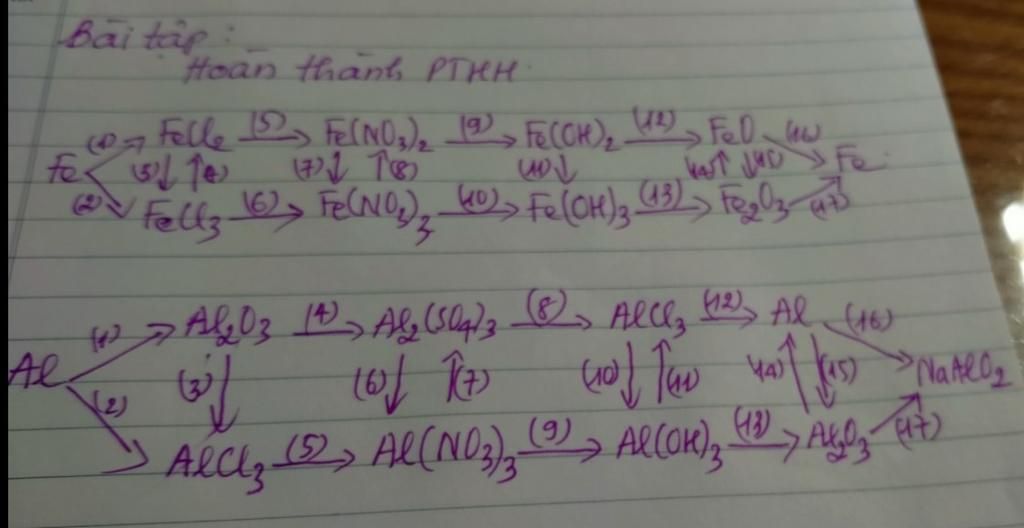 Bài tập:
Hoàn thành PTHH
(1) FeCl2 (5) Fe(NO3)2 (9) Fe(OH)2 (12) FeO (16)
Fe (3) (4) (7) (8) (10) (14) (15) Fe
(2) FeCl3 (6) Fe(NO3)3 (10) Fe(OH)3 (13) Fe2O3 (17)
(1) Al2O3 (4) Al2(SO4)3 (8) AlCl3 (12) Al (16)
Al (2) (3) (6) (7) (10) (11) (14) (15) NaAlO2
AlCl3 (5) Al(NO3)3 (9) Al(OH)3 (13) Al2O3 (17)